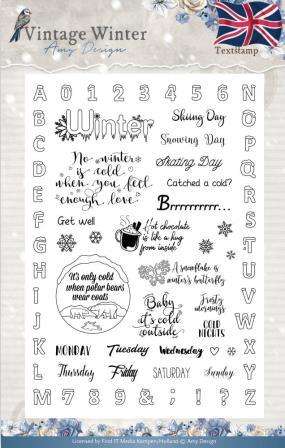 Vintage Winter
Amy Design
Textstamp
A 0 1 2 3 4 5 6 N
B O
C P
D Q
E R
F S
G T
H U
I V
J W
K X
L Y
M 7 8 9 & ; ! ? Z
Winter
Skiing Day
Snowing Day
Skating Day
No winter
is cold
when you feel
enough love.
Catched a cold?
Brrrrrrrrrr...
Get well
Hot chocolate
is like a hug
from inside
A snowflake is
winter's butterfly
It's only cold
when polar bears
wear coats
Baby
it's cold
outside
Frosty
mornings
COLD
NIGHTS
MONDAY Tuesday Wednesday
Thursday Friday SATURDAY Sunday
Licensed by Find IT Media Kampen/Holland © Amy Design